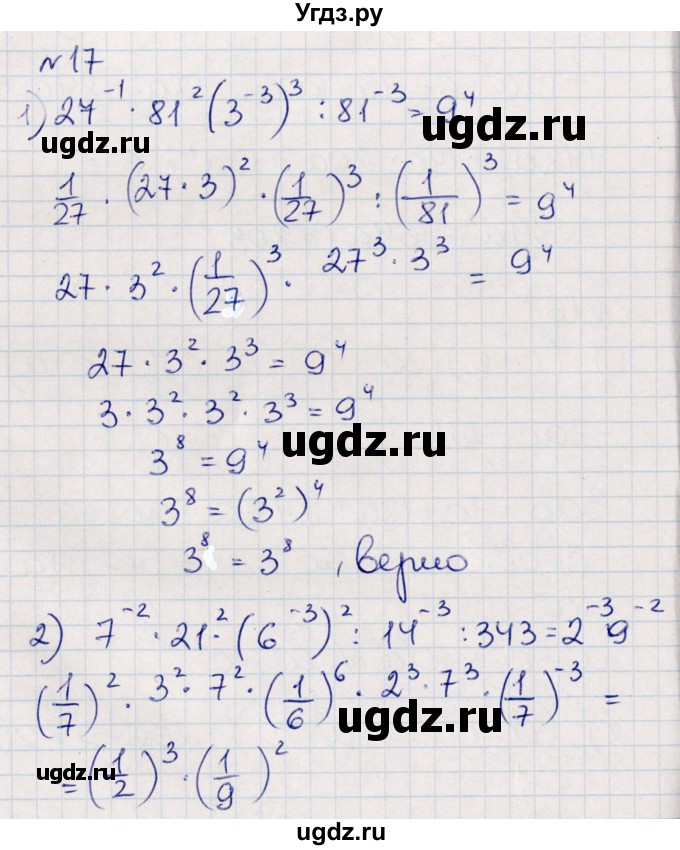 Угдз.ру
№17
1) 27⁻¹ · 81² (3⁻³)³ : 81⁻³ = 9⁴
ugdz.ru
ugdz.ru
1/27 · (27 · 3)² · (1/27)³ : (1/81)³ = 9⁴
27 · 3² · (1/27)³ · 27³ · 3³ = 9⁴
27 · 3² · 3³ = 9⁴
3 · 3² · 3² · 3³ = 9⁴
ugdz.ru
3⁸ = 9⁴
3⁸ = (3²)⁴
3⁸ = 3⁸ , верно
2) 7⁻² · 21·² (6⁻³)² : 14⁻³ : 343 = 2⁻³ 9⁻²
(1/7)² · 3² · 7² · (1/6)⁶ · 2³ · 7³ · (1/7)⁻³ =
ugdz.ru
ugdz.ru
= (1/2)³ · (1/9)²
ugdz.ru